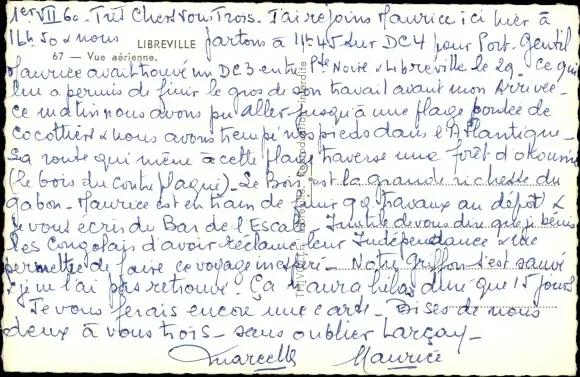 1er VII 60. Très Chers Vous Trois. J'ai rejoins Maurice ici hier à
16h50 & nous partons à 11h45 sur DC4 pour Port. Gentil
LIBREVILLE
67 — Vue aérienne.
Maurice avait trouvé un DC3 entre Pte Noire & Libreville le 29. ce qui
lui a permis de finir le gros de son travail avant mon Arrivée.
ce matin nous avons pu aller jusqu'à une plage bordée de
cocotiers & nous avons trempé nos pieds dans l'Atlantique.
La route qui mène à cette plage traverse une forêt d'okoumé
(le bois du contre plaqué). Le Bois est la grande richesse du
Gabon. Maurice est en train de finir qq travaux au dépôt &
je vous écris du Bar de l'Escale. Inutile de vous dire que je bénis
les Congolais d'avoir réclamé leur Indépendance & de
permettre de faire ce voyage inespéré. Notre Griffon s'est sauvé
& je ne l'ai pas retrouvé. Ca n'aura hélas duré que 15 jours
Je vous ferais encore une carte. Bises de nous
deux à vous trois — sans oublier Larçay —
Marcelle Maurice
Reproduction interdite